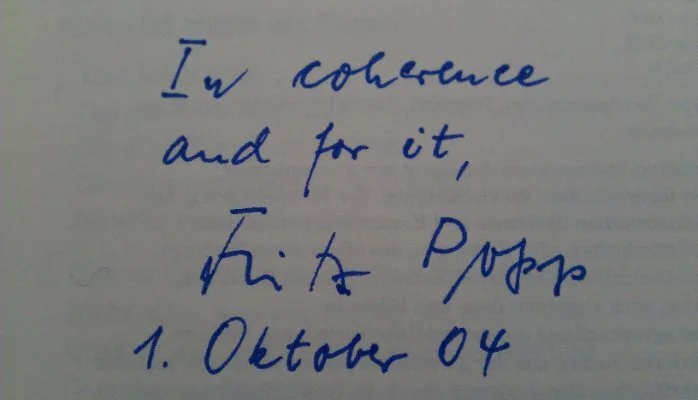 In coherence
and for it,
Fritz Popp
1. Oktober 04